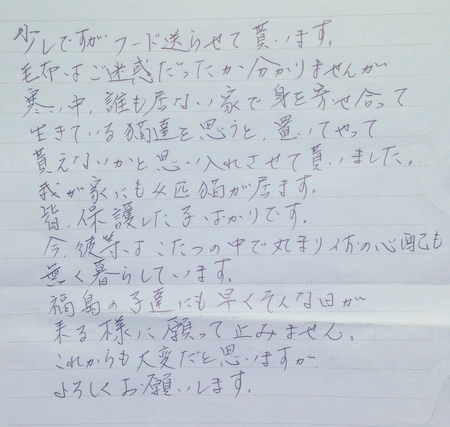 少しですが フード送らせて貰います。
毛布はご迷惑だったか分かりませんが
寒い中、誰も居ない家で身を寄せ合って
生きている猫達を思うと、置いてやって
貰えないかと思い入れさせて貰いました。
我が家にも4匹猫が居ます。
皆、保護した子ばかりです。
今、彼等はこたつの中で丸まり何の心配も
無く暮らしています。
福島の子達にも早くそんな日が
来る様に願って止みません。
これからも大変だと思いますが
よろしくお願いします。